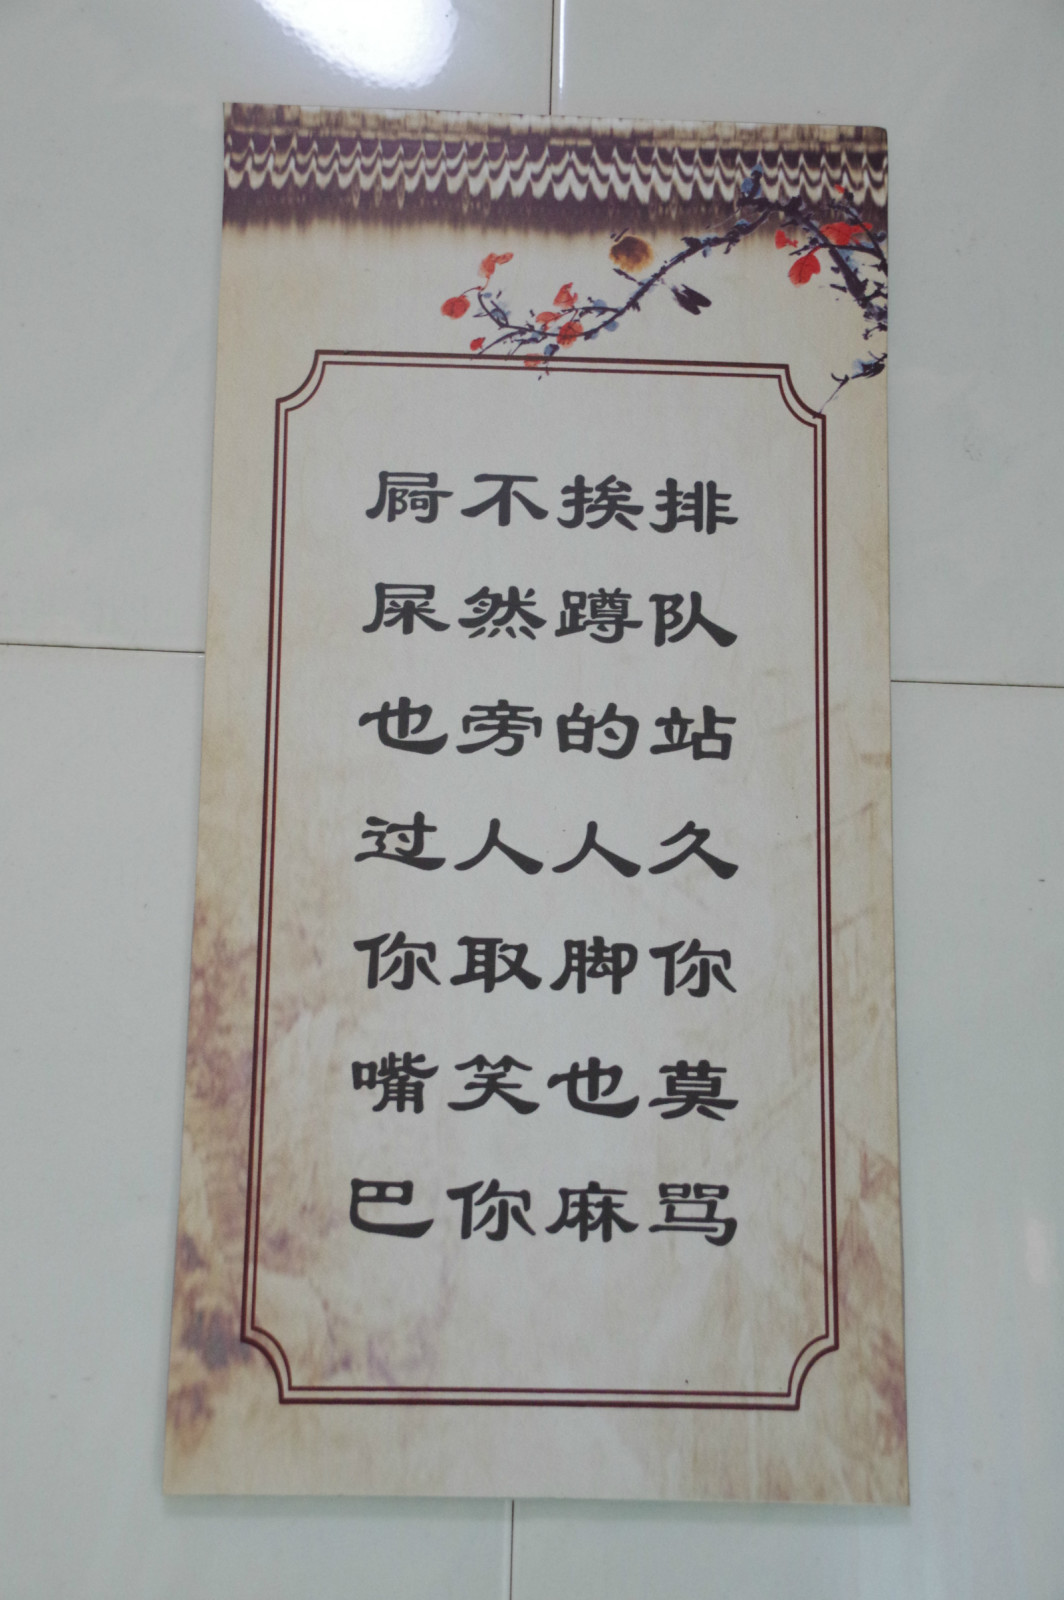 排队站久你莫骂
挨蹲的人脚也麻
不然旁人取笑你
屙屎也过你嘴巴